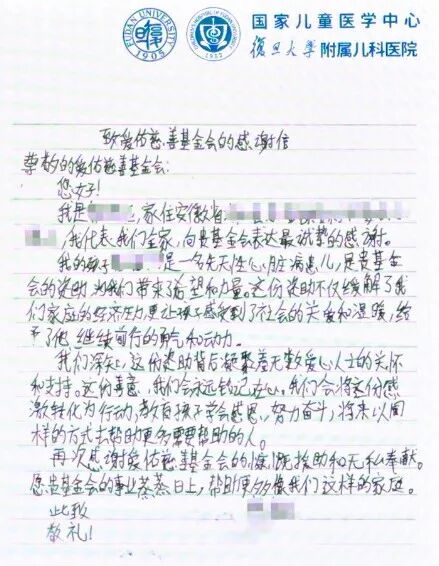 FUDAN UNIVERSITY
1905
1952
国家儿童医学中心
復旦大学附属儿科医院
致爱佑慈善基金会的感谢信
尊敬的爱佑慈善基金会:
您好!
我是 ,家住安徽省
,我代表我们全家,向贵基金会表达最诚挚的感谢。
我的孩子 是一名先天性心脏病患儿,是贵基金
会的资助,为我们带来了希望和力量。这份资助不仅缓解了我
们家庭的经济压力更让孩子感受到了社会的关爱和温暖,给
予了他继续前行的勇气和动力。
我们深知,这份资助背后凝聚着无数爱心人士的关怀
和支持。这份善意,我们会永远铭记在心。我们会将这份感
激转化为行动,教育孩子学会感恩,努力奋斗,将来以同
样的方式去帮助更多需要帮助的人。
再次感谢爱佑慈善基金会的慷慨援助和无私奉献。
愿贵基金会的事业蒸蒸日上,帮助更多像我们这样的家庭。
此致
敬礼!